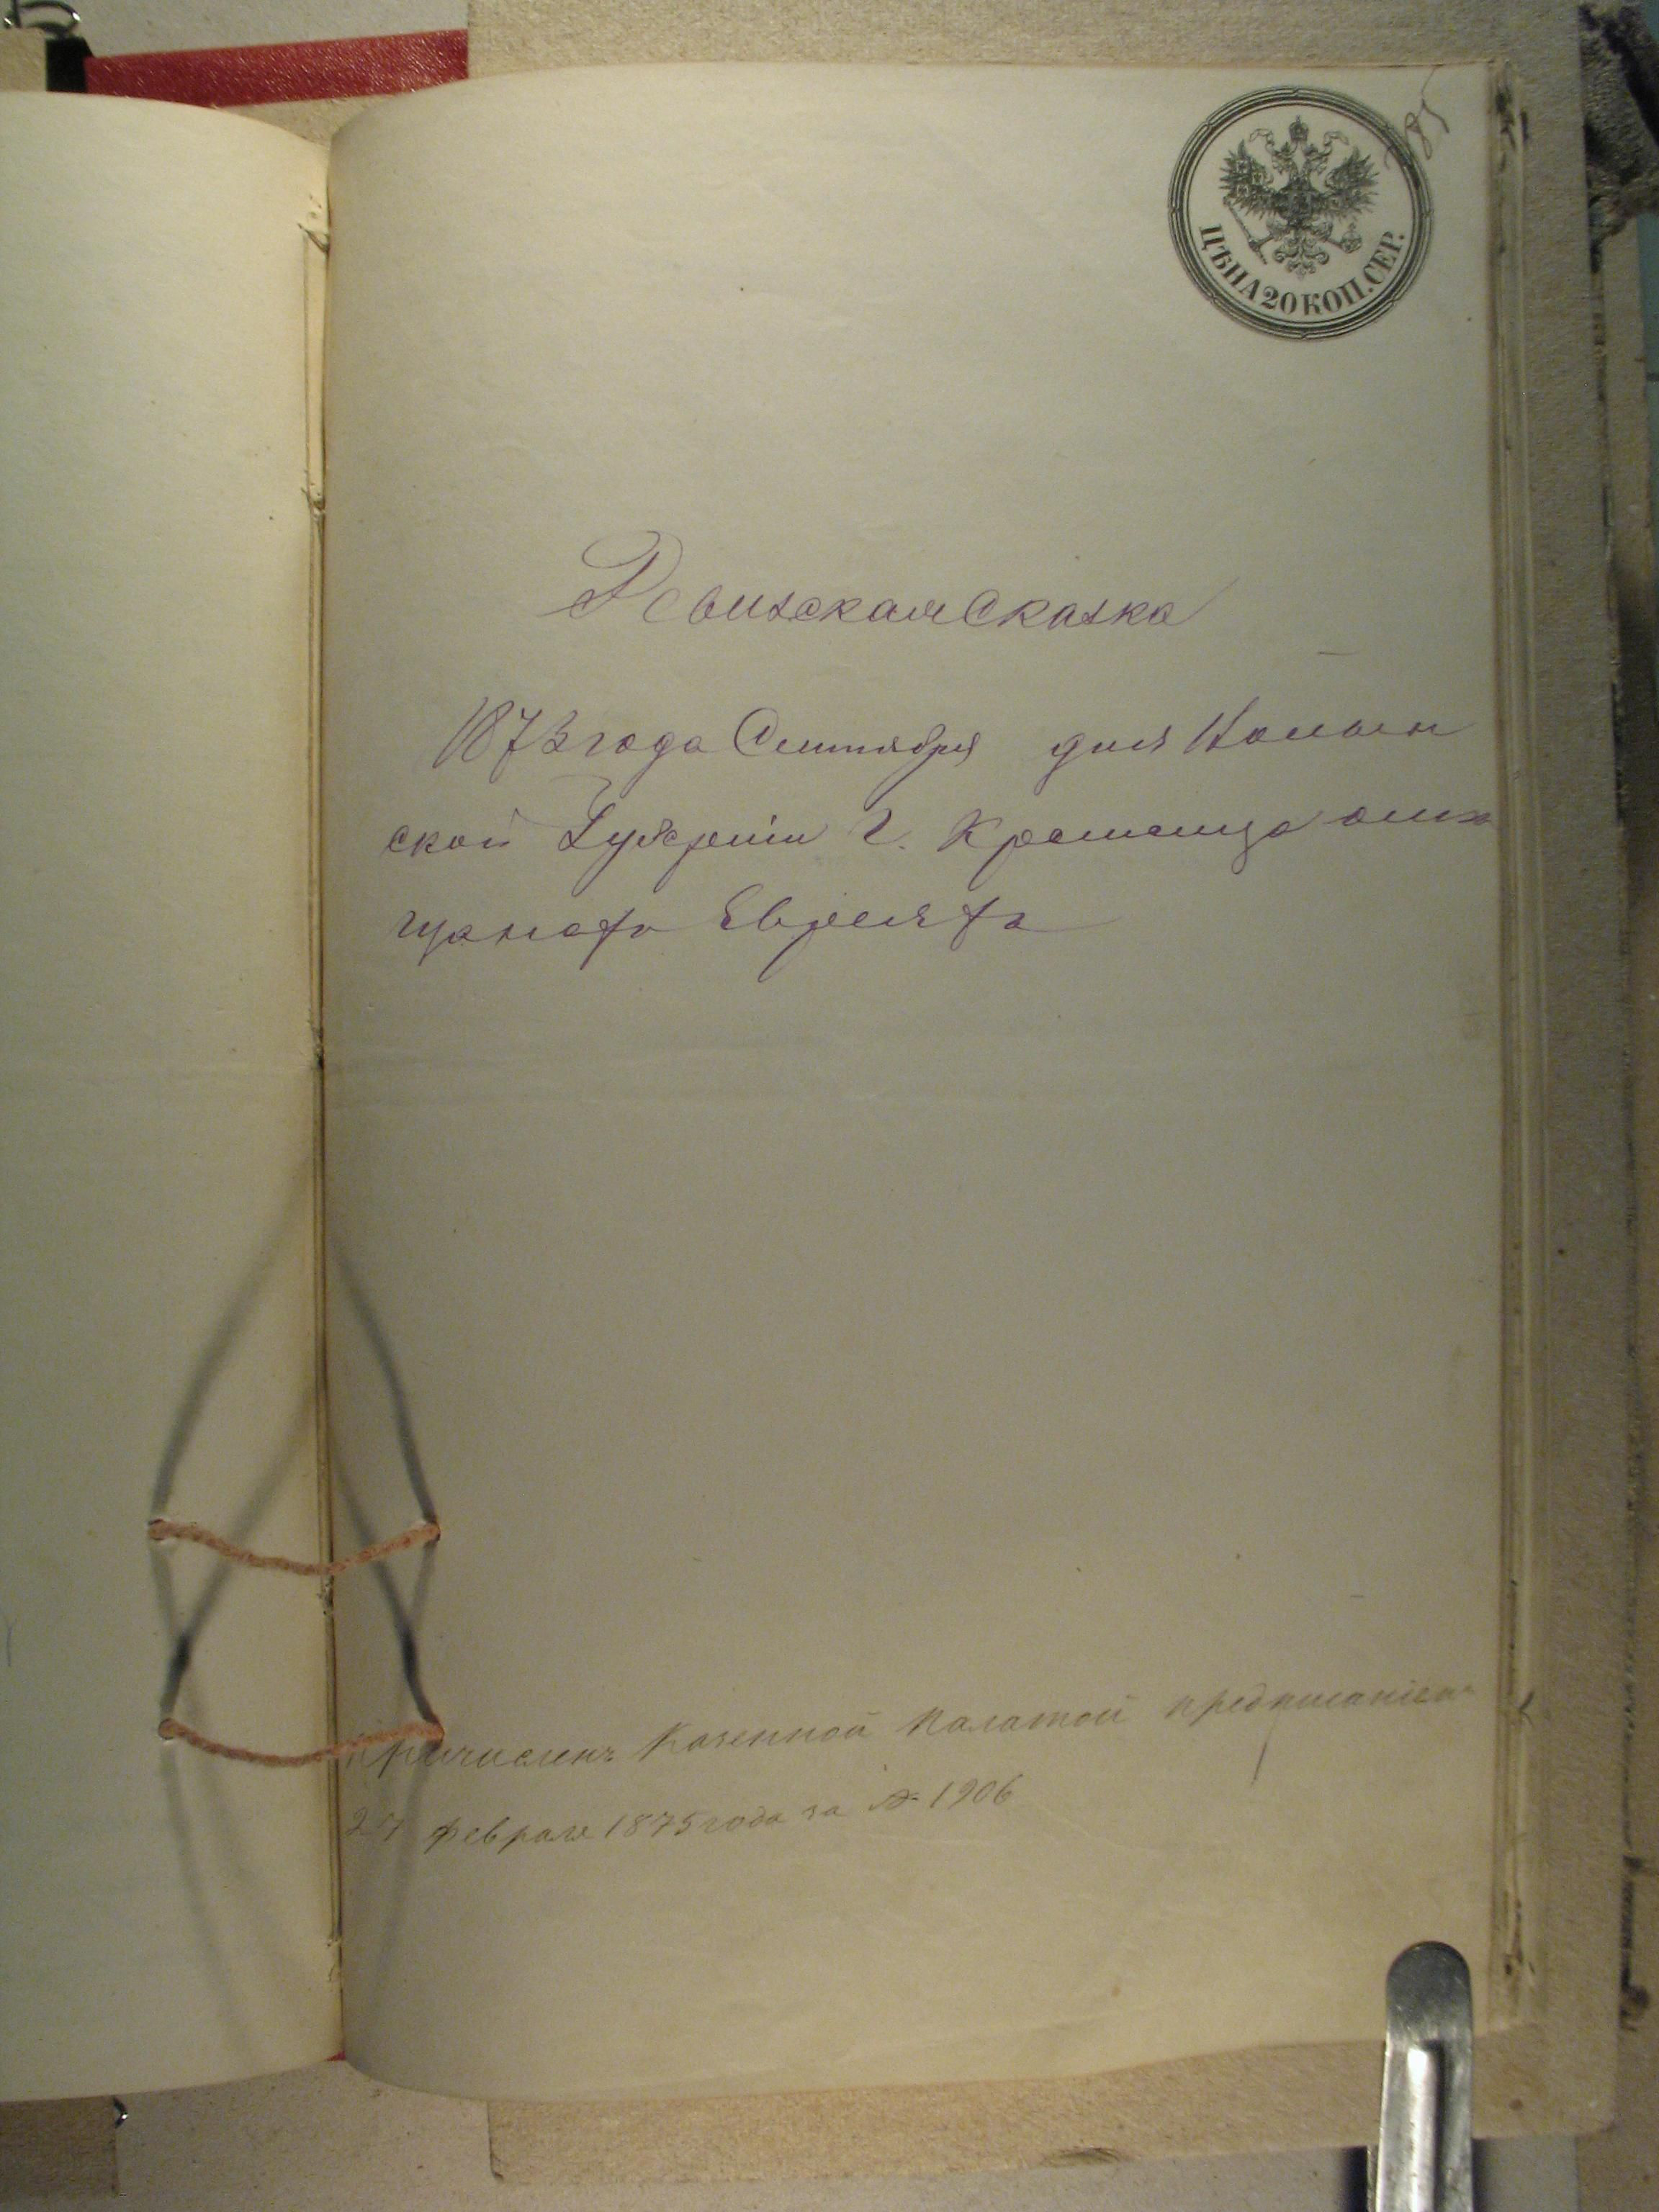 185
ЦѢНА 20 КОП. СЕР.
Ревизская Сказка
1873 года Сентября дня Волын
ской Губерніи г. Кременца о мѣ
щанахъ Евреяхъ
Причисленъ Казенной Палатой предписаніемъ
Февраля 1875 года за № 1906